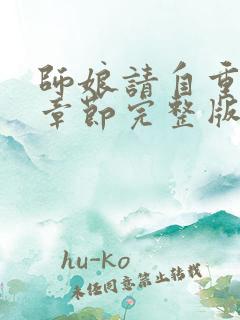 師娘請自重
章節完整版
hu-ko
未經同意禁止轉載